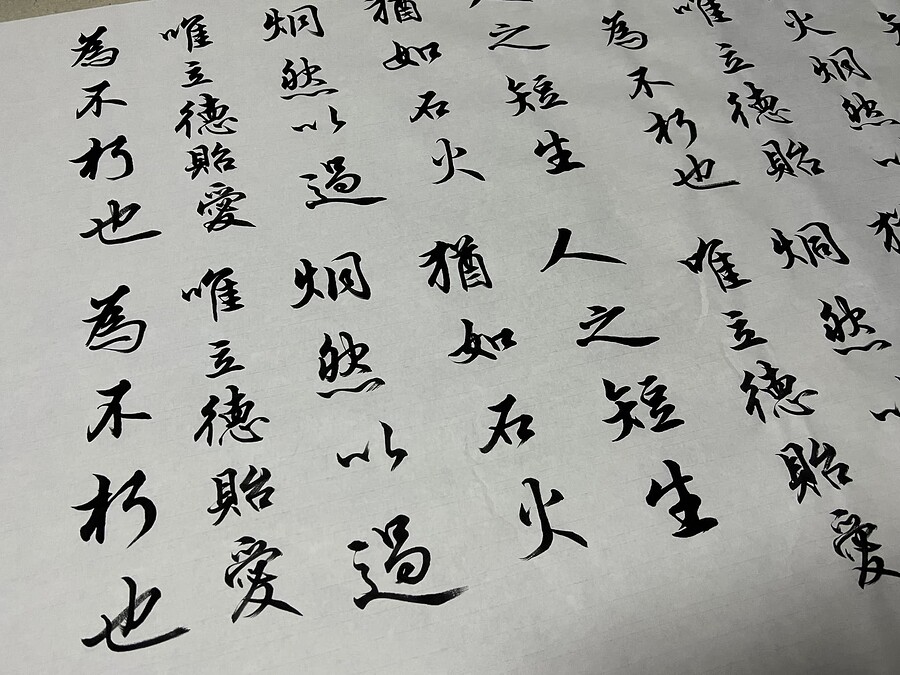 火炯然以
唯立德貽
為不朽也
人之短生
猶如石火
炯然以過
唯立德貽愛
為不朽也
猶
炯然以
唯立德貽愛
人之短生
猶如石火
炯然以過
唯立德貽愛
為不朽也